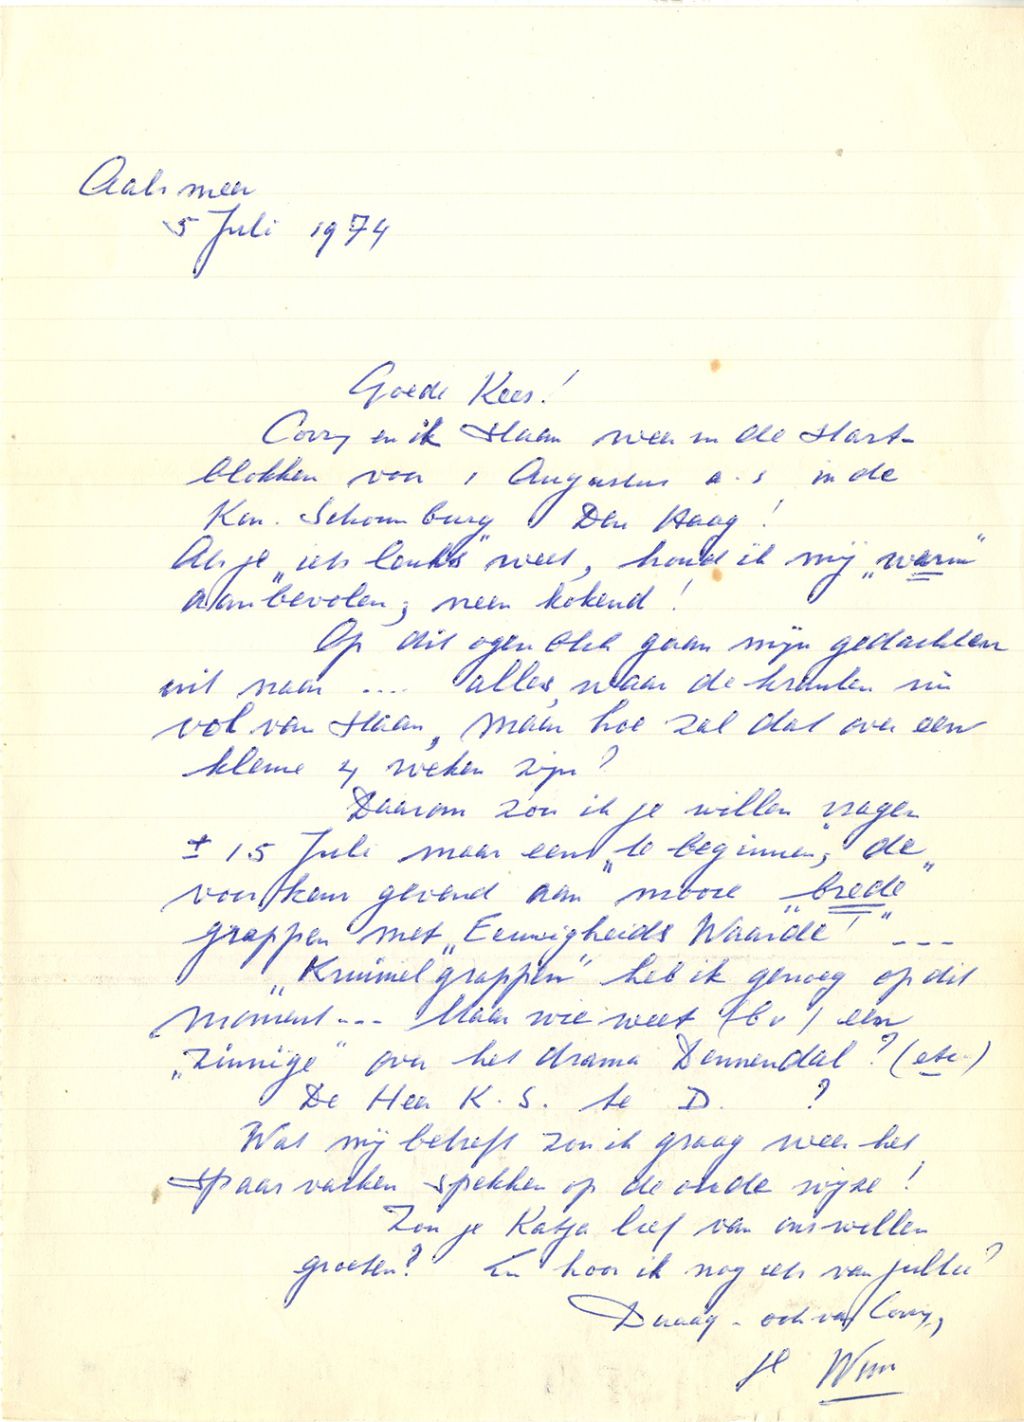 Aalsmeer
5 Juli 1974
Goede Kees!
Corry en ik staan weer in de start-
blokken voor 1 Augustus a.s in de
Kon. Schouwburg Den Haag!
Als je „iets leuks" weet, houd ik mij „warm"
aanbevolen, neen kokend!
Op dit ogenblik gaan mijn gedachten
uit naar .... alles, waar de kranten nu
vol van staan, maar hoe zal dat over een
kleine 4 weken zijn?
Daarom zou ik je willen vragen
± 15 Juli maar eens „te beginnen", de
voorkeur gevend aan mooie „brede"
grappen met „Eeuwigheids Waarde!" ---
„Kruimelgrappen" heb ik genoeg op dit
moment --- Maar wie weet (b v) een
„zinnige" over het drama Dennendal? (etc.)
De Heer K. S. te D. ?
Wat mij betreft zou ik graag weer het
spaarvarken spekken op de oude wijze!
Zou je Katja lief van ons willen
groeten? En hoor ik nog iets van jullie?
Daaag - ook van Corry,
je Wim